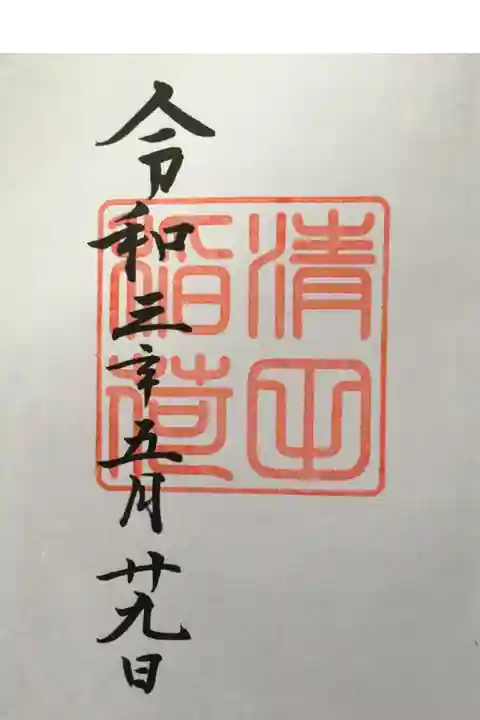 清
稲荷
令和三年五月廿九日